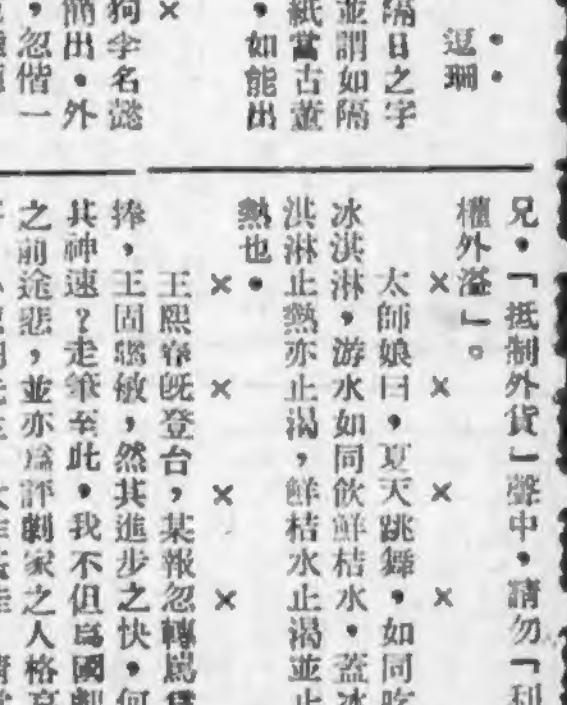 逗
隔日之字
並謂如隔
紙當古董
，如能出
×
狗李名懿
出，外
，忽偕一
兄，「抵制外貨」聲中，請勿「利
權外溢」。
× × × ×
太師娘曰，夏天跳舞，如同吃
冰淇淋，游水如同飲鮮桔水，蓋冰
淇淋止熱亦止渴，鮮桔水止渴並止
熱也。
× × × ×
王熙春旣登台，某報忽轉罵爲
捧，王固聰敏，然其進步之快，何
其神速？走筆至此，我不但爲國劇
之前途悲，並亦爲評劇家之人格哀